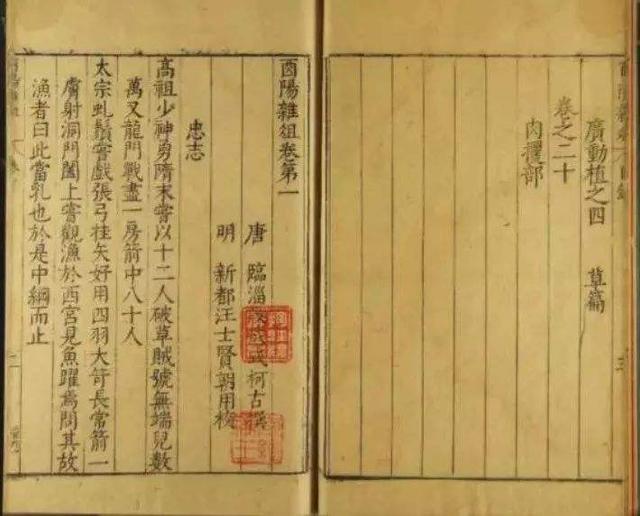 廣動植之四　草篇
卷之二十
肉攫部
酉陽雜俎卷第一
唐　臨淄段成式柯古撰
明　新都汪士賢朝用校
忠志
高祖少神勇隋末嘗以十二人破草賊號無端兒數
萬又龍門戰盡一房箭中八十人
太宗虬鬚嘗戲張弓挂矢好用四羽大笴長常箭一
膚射洞門闔上嘗觀漁於西宮見魚躍焉問其故
漁者曰此當乳也於是中網而止